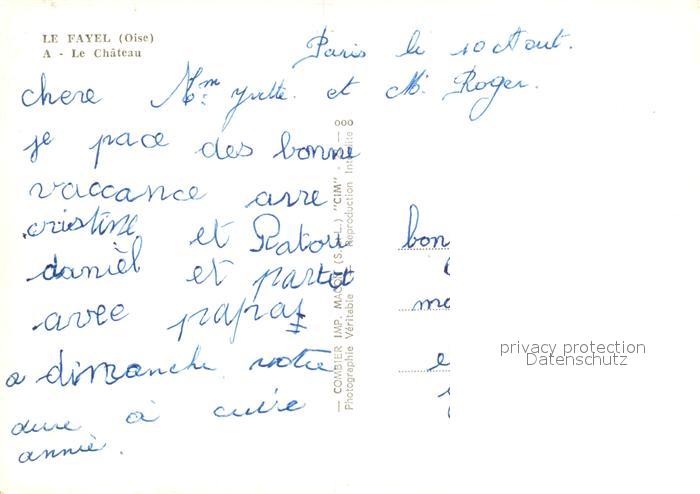 LE FAYEL (Oise)
A - Le Château
Paris le 10 Aout.
chere Mme yvette. et M. Roger.
je pace des bonne
vaccance avre
cristine et Patou
danièl et partet
avee papa
a dimanche votre
à
annié.
bon
ooo
— COMBIER IMP. MACON (S.A.L.) "CIM". —
Photographie Véritable — Reproduction Interdite
privacy protection
Datenschutz